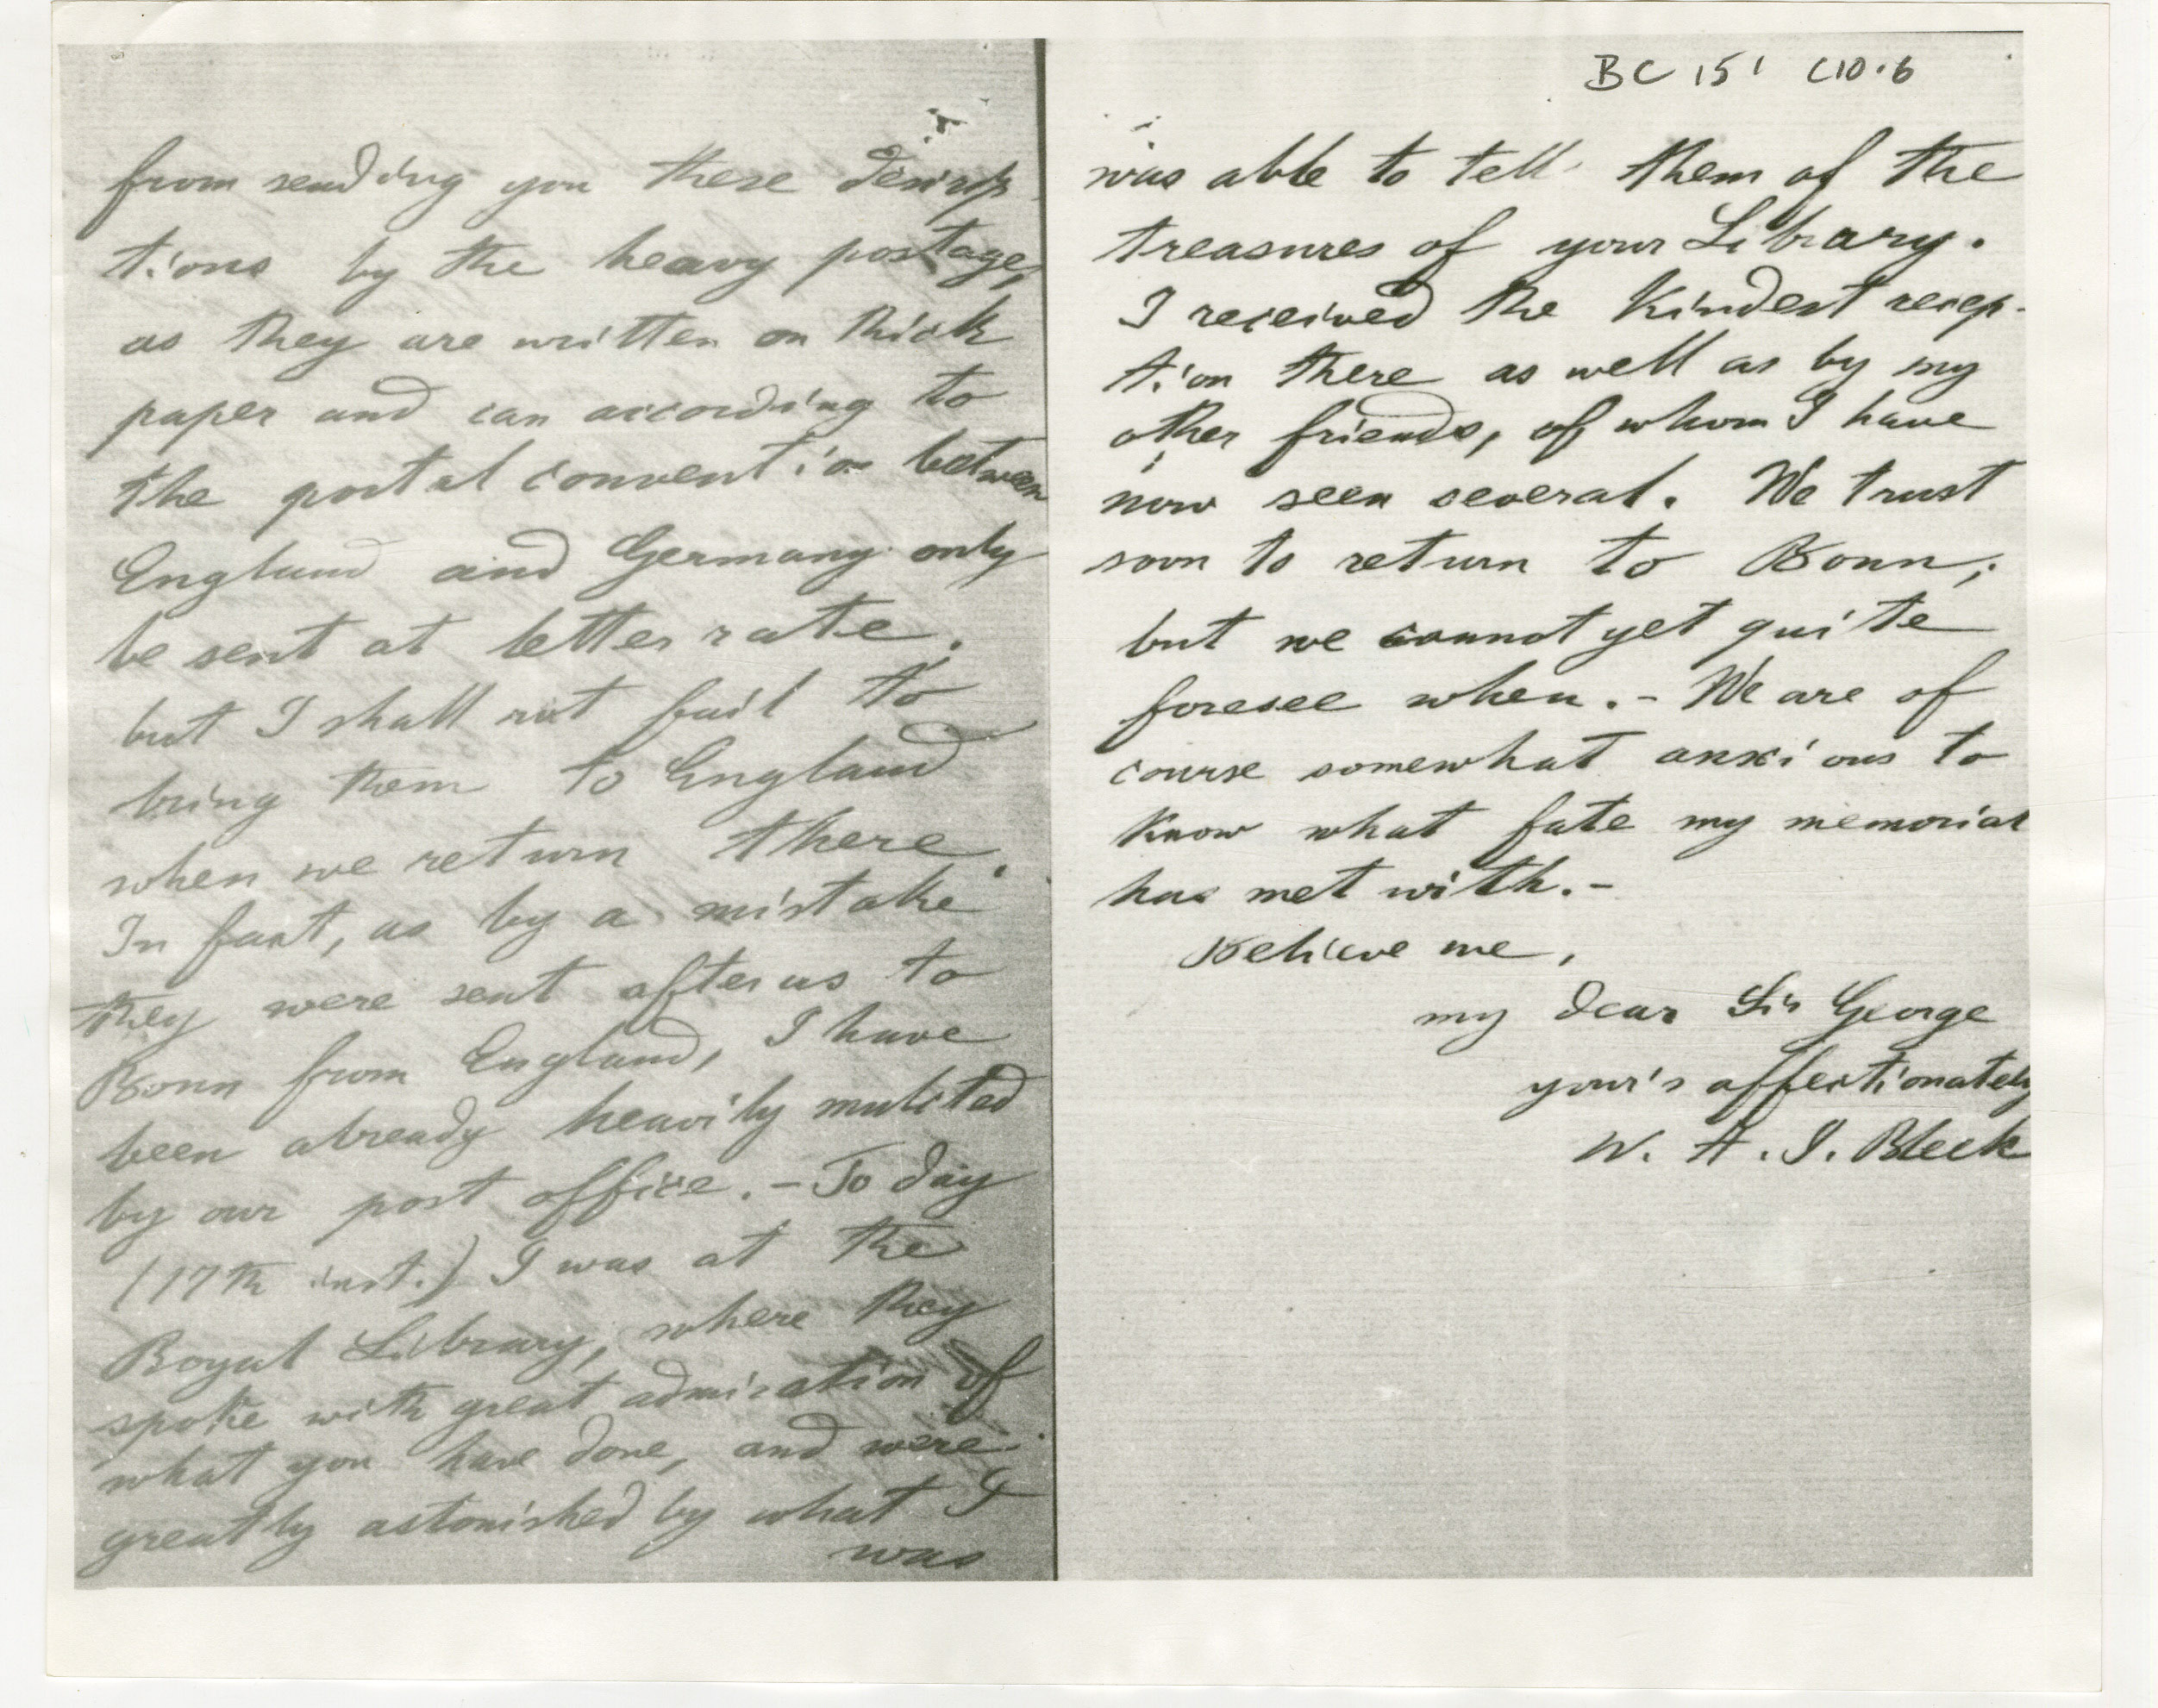 from sending you these descrip-
tions by the heavy postage,
as they are written on thick
paper and can according to
the postal convention between
England and Germany only
be sent at letter rate;
but I shall not fail to
bring them to England
when we return there.
In fact, as by a mistake
they were sent after us to
Bonn from England, I have
been already heavily mulcted
by our post office. - To day
(17th inst.) I was at the
Royal Library, where they
spoke with great admiration of
what you have done, and were
greatly astonished by what I
was
BC 151 C10.6
was able to tell them of the
treasures of your Library.
I received the kindest recep-
tion there as well as by my
other friends, of whom I have
now seen several. We trust
soon to return to Bonn;
but we cannot yet quite
foresee when. - We are of
course somewhat anxious to
know what fate my memorial
has met with. -
Believe me,
my dear Sir George
your's affectionately
W. H. I. Bleek